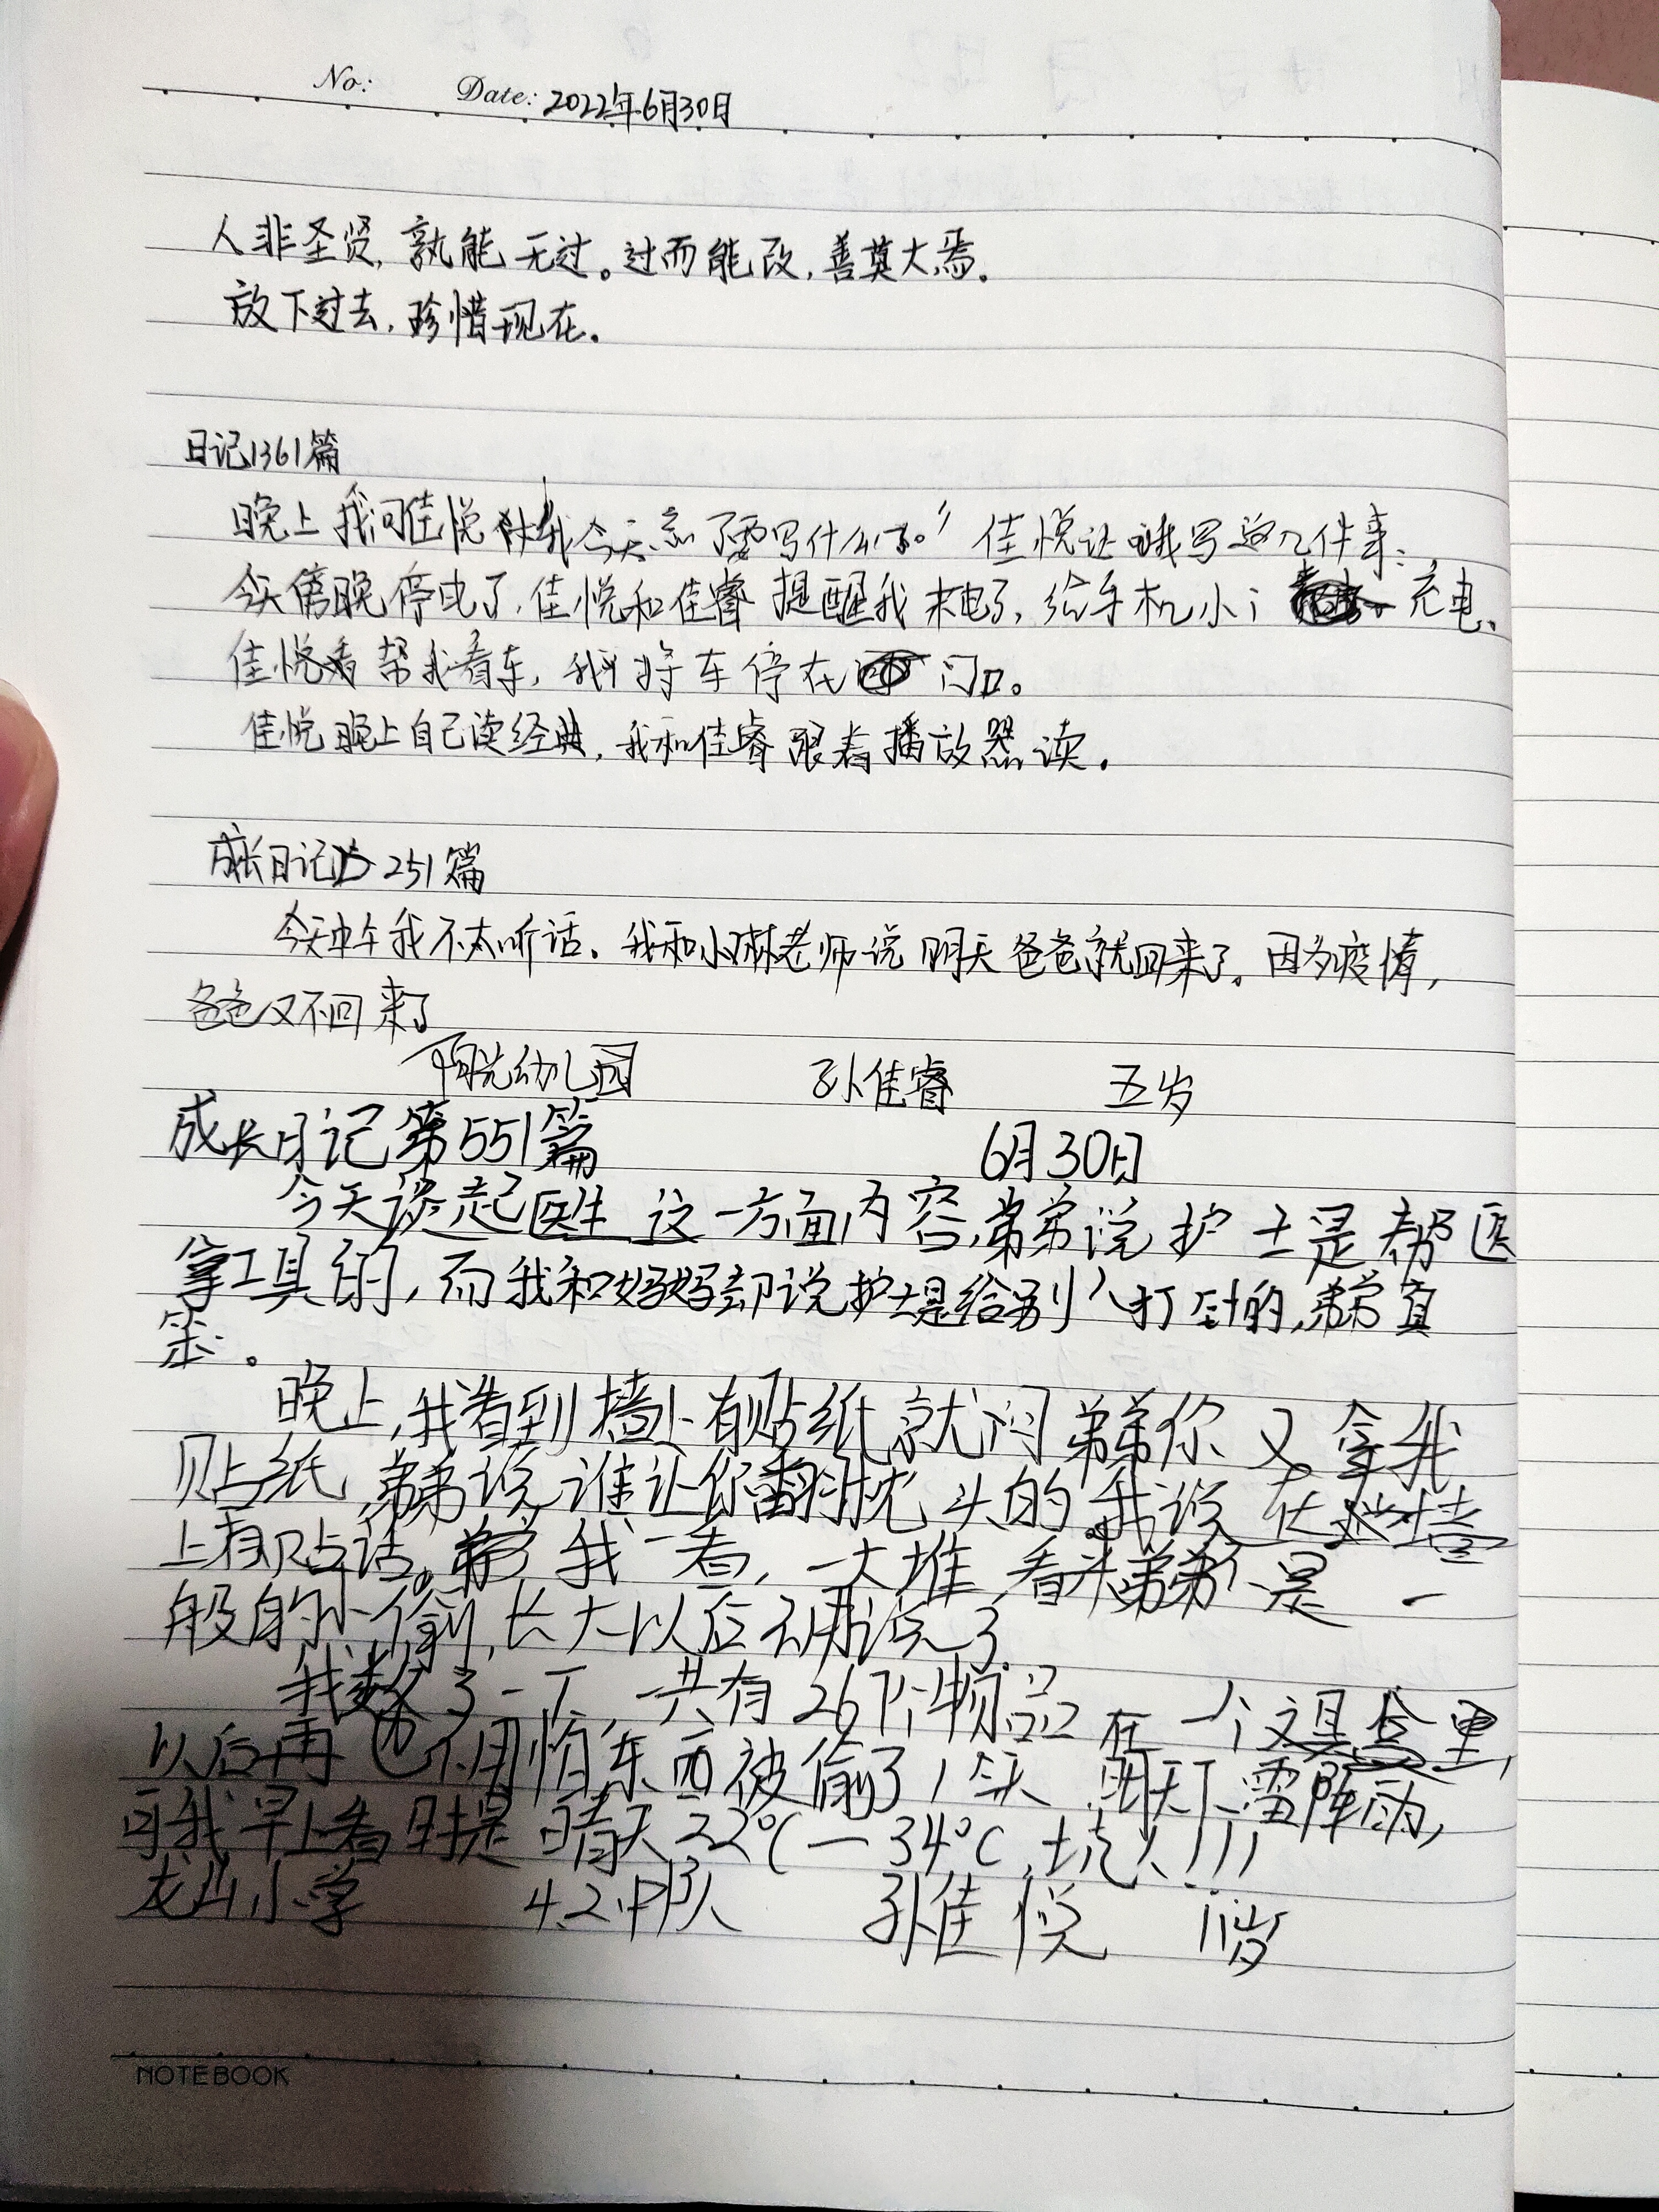 No: Date: 2022年6月30日
人非圣贤,孰能无过。过而能改,善莫大焉。
放下过去,珍惜现在。
日记1361篇
晚上我问佳悦 我今天忘了要写什么了。”佳悦让我写这几件事:
今天傍晚停电了,佳悦和佳睿提醒我来电了,给手机小 充电、
佳悦帮我看车,我将车停在门口。
佳悦晚上自己读经典,我和佳睿跟着播放器读。
成长日记 251篇
今天中午我不太听话。我和小琳老师说明天爸爸就回来了。因为疫情,
爸爸又不回来了
阳光幼儿园 孙佳睿 五岁
成长日记第551篇 6月30日
今天谈起医生这一方面内容,弟弟说护士是帮医
拿工具的,而我和妈妈却说护士是给别人打针的,弟弟真
笨。
晚上,我看到墙上有贴纸就问弟弟你又拿我
贴纸,弟弟说谁让你翻我枕头的。我说在墙
上有贴话。弟弟我一看,一大堆,看来弟弟不是一
般的小偷,长大以后不用说了。
我数了一下,一共有26个物品在一个文具盒里,
以后再也不用怕东西被偷了!今天明天下雷阵雨,
可我早上看时是晴天22℃—34℃,坑人!!!
龙山小学 4.2中队 孙佳悦 11岁
NOTEBOOK